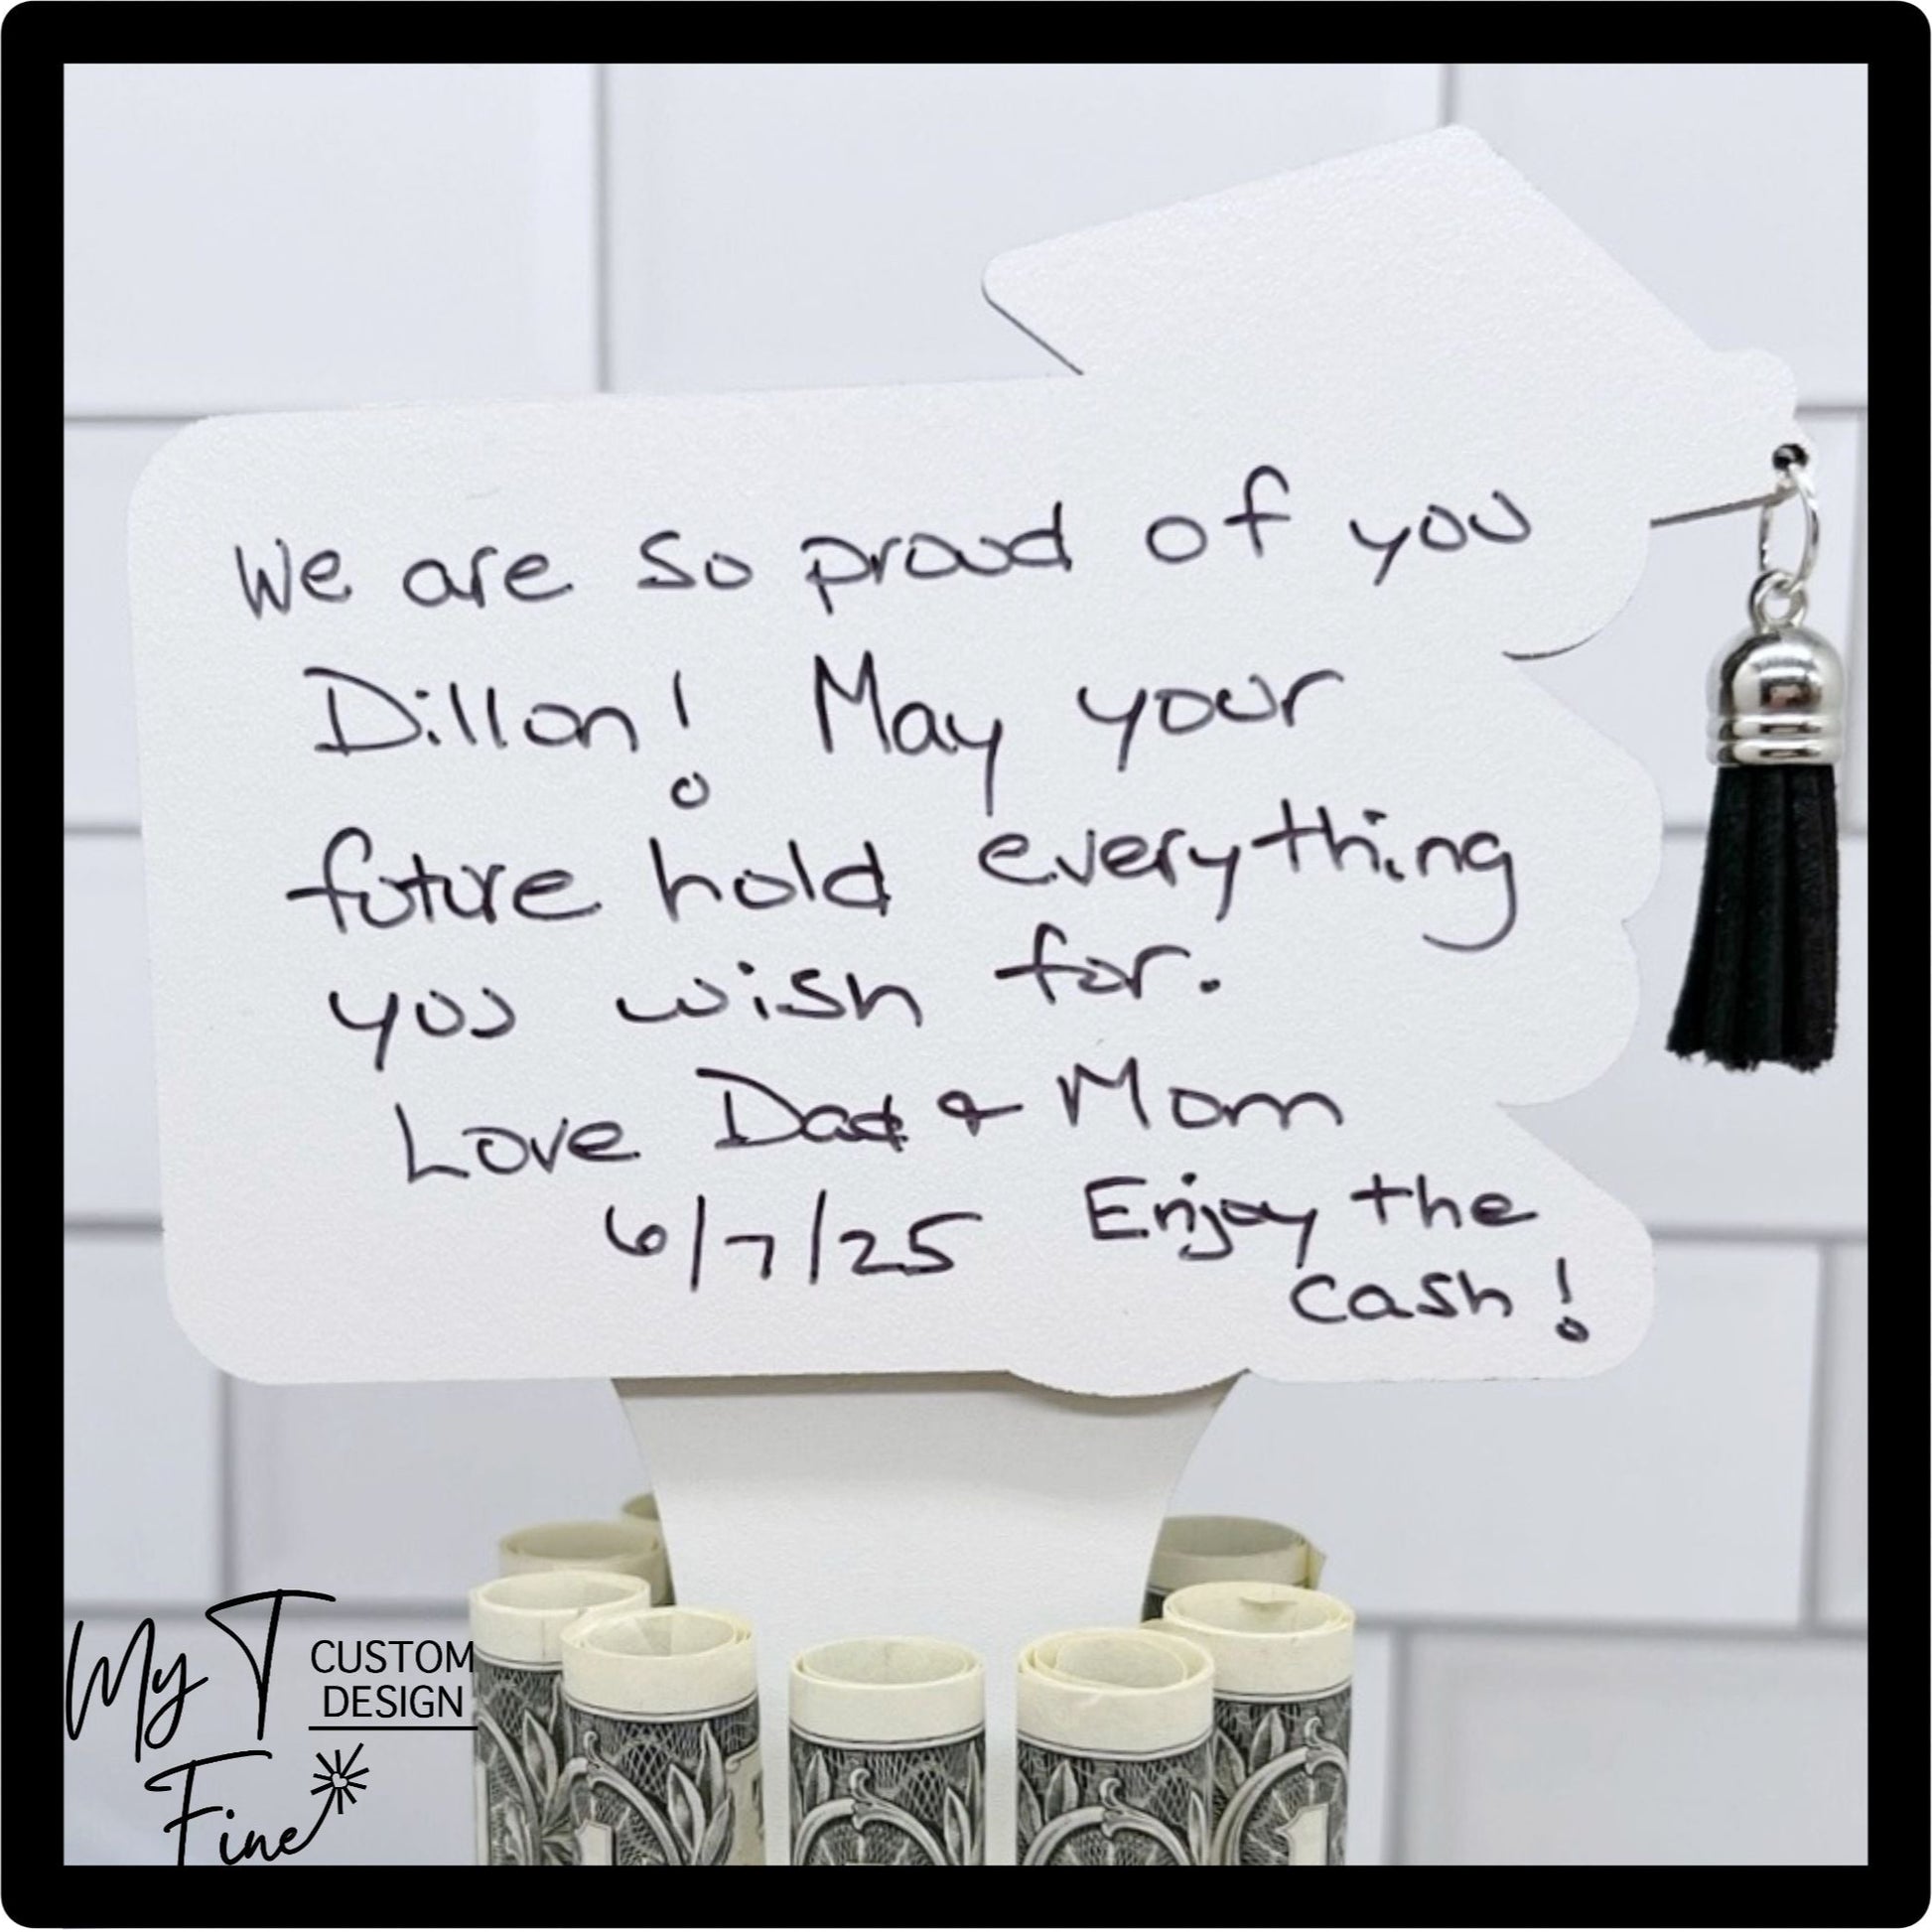 We are so proud of you
Dillon! May your
future hold everything
you wish for.
Love Dad & Mom
6/7/25 Enjoy the
cash!
My T
CUSTOM
DESIGN
Fine
1
1